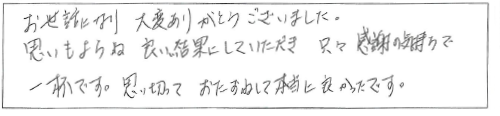 お世話になり 大変ありがとうございました。
思いもよらぬ 良い結果にしていただき 只々 感謝の気持ちで
一杯です。思い切って おたずねして本当に良かったです。